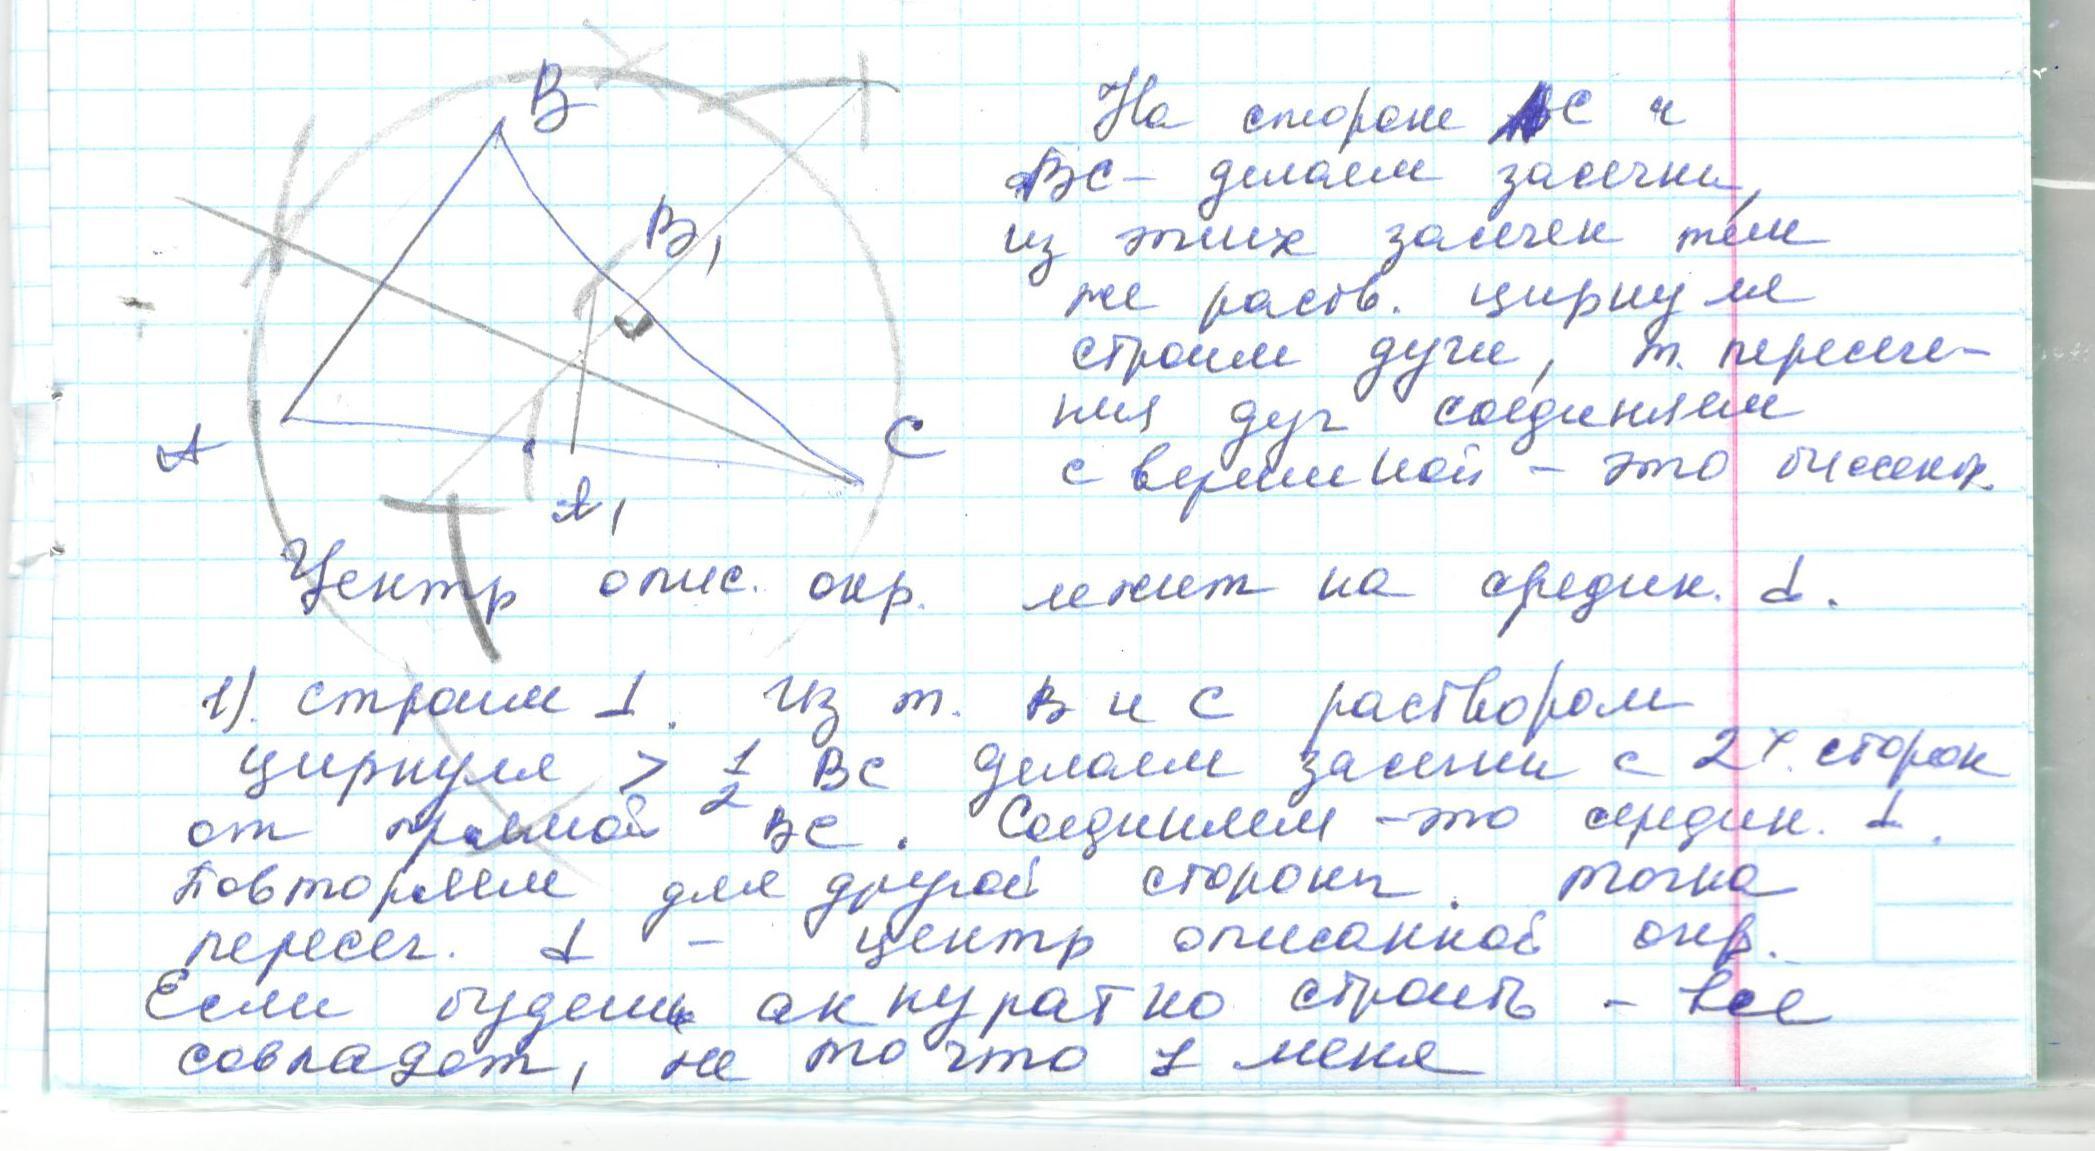 B
На стороне AC и
BC - делаем засечки,
из этих засечек тем
же раств. циркуля
строим дуги, т. пересече-
ния дуг соединяем
с вершиной - это биссект.
B₁
A
C
A₁
Центр опис. окр. лежит на средин. ⊥.
1). строим ⊥. Из т. B и C раствором
циркуля > 1/2 BC делаем засечки с 2х. сторон
от прямой BC. Соединяем - это средин. ⊥.
Повторяем для другой стороны. Точка
пересеч. ⊥ - центр описанной окр.
Если будешь аккуратно строить - все
совпадет, не то что у меня